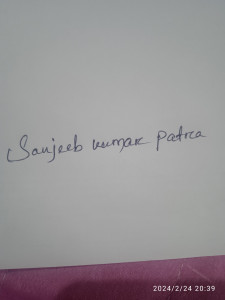 Sanjeeb kumar Patra
2024/2/24 20:39